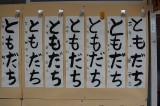 ともだち
ともだち
ともだち
ともだち
ともだち
ともだち
ともだち